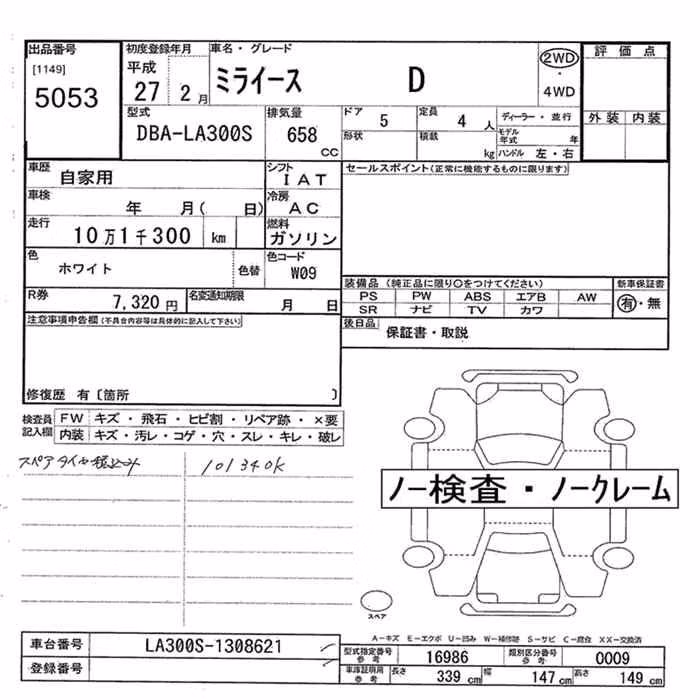 出品番号
[1149]
5053
初度登録年月
平成
27 2月
車名・グレード
ミライース D
2WD
・
4WD
評価点
外装 内装
型式
DBA-LA300S
排気量
658
CC
ドア 5
定員 4 人
形状
積載 kg
ディーラー・並行
モデル年式 年
ハンドル 左・右
車歴
自家用
シフト
IAT
車検
年 月( 日)
冷房
AC
走行
10万1千300 km
燃料
ガソリン
色
ホワイト
色替
色コード
W09
R券
7,320円
名変通知期限
月 日
セールスポイント(正常に機能するものに限ります)
装備品 (純正品に限り○をつけてください)
新車保証書
PS PW ABS エアB AW
SR ナビ TV カワ
有・無
後日品
保証書・取説
注意事項申告欄(不具合内容等は具体的に記入して下さい)
修復歴 有〔箇所 〕
検査員
記入欄
FW キズ・飛石・ヒビ割・リペア跡・×要
内装 キズ・汚レ・コゲ・穴・スレ・キレ・破レ
スペアタイヤ
101340K
ノー検査・ノークレーム
スペア
A-キズ E-エクボ U-凹み W-補修跡 S-サビ C-腐食 XX-交換済
車台番号
LA300S-1308621
登録番号
型式指定番号
参考
16986
類別区分番号
参考
0009
車庫証明用
参考
長さ 339 cm
幅 147 cm
高さ 149 cm